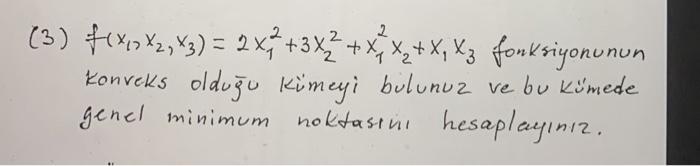 (3) f(x₁, x₂, x₃) = 2x₁² + 3x₂² + x₁² x₂ + x₁ x₃ fonksiyonunun
konveks olduğu kümeyi bulunuz ve bu kümede
genel minimum noktasını hesaplayınız.